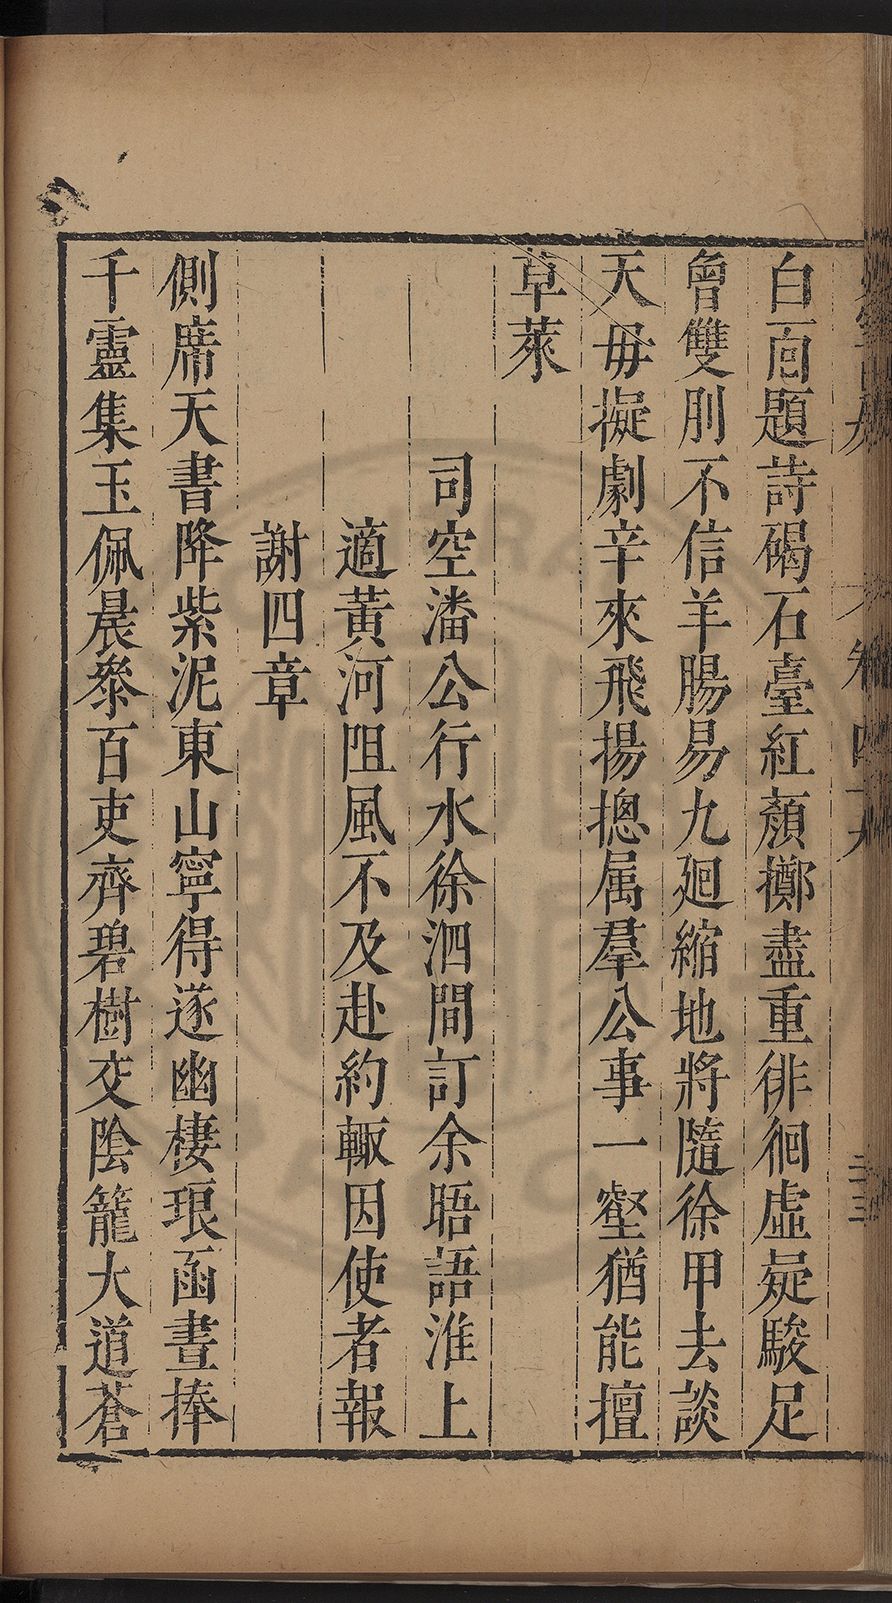 白面題詩碣石臺紅顏擲盡重徘徊虛疑駿足
曾雙刖不信羊腸易九廻縮地將隨徐甲去談
天毋擬劇辛來飛揚摠属羣公事一壑猶能擅
草萊
司空潘公行水徐泗間訂余晤語淮上
適黃河阻風不及赴約輙因使者報
謝四章
側席天書降紫泥東山寧得遂幽棲琅函晝捧
千靈集玉佩晨叅百吏齊碧樹交陰籠大道蒼
卷四十九
二三